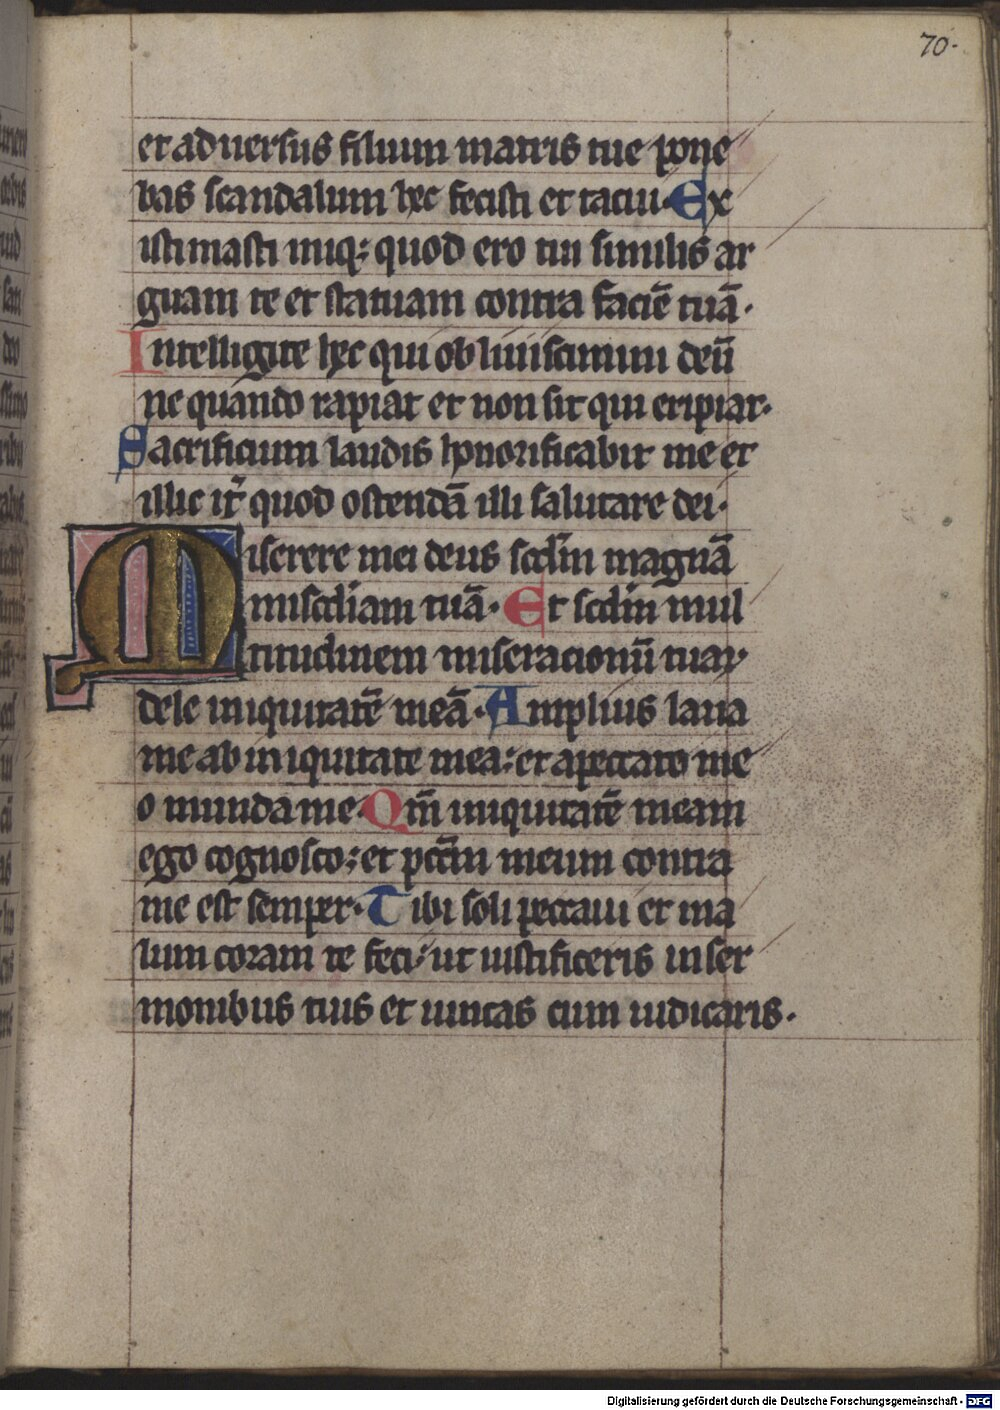 70.
et aduersus filium matris tue pone
bas scandalum hec fecisti et tacui. Ex
istimasti iniq; quod ero tui similis ar
guam te et statuam contra faciē tuā.
Intelligite hec qui obliuiscimini deū
ne quando rapiat et non sit qui eripiat.
Sacrificium laudis honorificabit me et
illic it̄ quod ostendā illi salutare dei.
Miserere mei deus scdm̄ magnā
misc̄diam tuā. Et scdm̄ mul
titudinem miseracionū tuaꝝ
dele iniquitatē meā. Amplius laua
me ab iniquitate mea: et a peccato me
o munda me. Qm̄ iniquitatē meam
ego cognosco: et pcc̄m meum contra
me est semper. Tibi soli peccaui et ma
lum coram te feci: ut iustificeris in ser
monibus tuis et uincas cum iudicaris.
Digitalisierung gefördert durch die Deutsche Forschungsgemeinschaft - DFG